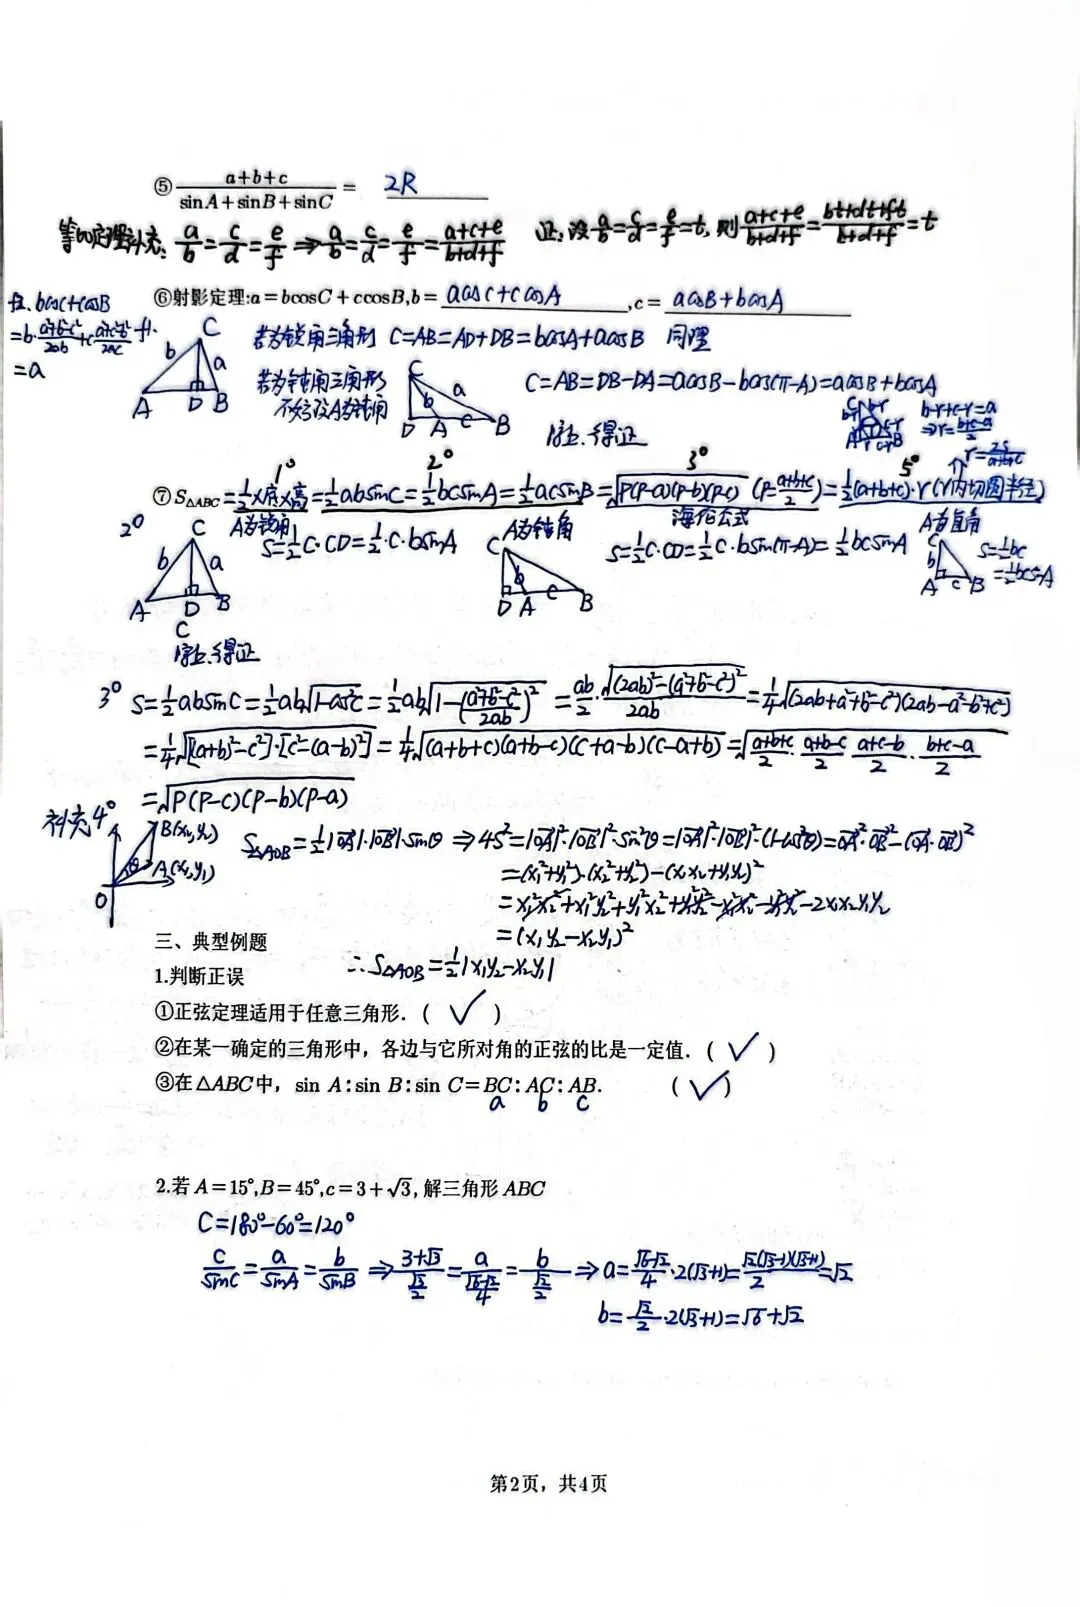 ⑤ (a+b+c)/(sinA+sinB+sinC) = 2R
等比定理补充: a/b=c/d=e/f ⇒ a/b=c/d=e/f=(a+c+e)/(b+d+f) 证:设a/b=c/d=e/f=t, 则(a+c+e)/(b+d+f)=(bt+dt+ft)/(b+d+f)=t
⑥射影定理:a=bcosC+ccosB,b= acosC+ccosA ,c= acosB+bcosA
bcosC+ccosB
=a
C
b
a
A
D
B
若为锐角三角形 C=AB=AD+DB=bcosA+acosB 同理
若为钝角三角形
不妨设A为钝角
C
b
a
D
A
c
B
C=AB=DB-DA=acosB-bcos(π-A)=acosB+bcosA
综上.得证
b-r+c-r=a
⇒r=(b+c-a)/2
r=2S/(a+b+c)
1° 2° 3° 5°
⑦ S△ABC=½×底×高=½absinC=½bcsinA=½acsinB=√(P(P-a)(P-b)(P-c)) (P=(a+b+c)/2)=½(a+b+c)·r(r内切圆半径)
海伦公式
2°
C
b
a
A
D
B
A为锐角
S=½C·CD=½·C·bsinA
A为钝角
C
b
c
D
A
B
S=½C·CD=½C·bsin(π-A)=½bcsinA
A为直角
C
b
A
c
B
S=½bc
=½bcsinA
C
综上.得证
3° S=½absinC=½ab√(1-cos²C)=½ab√(1-((a²+b²-c²)/2ab)²)=ab/2·√((2ab)²-(a²+b²-c²)²)/2ab=¼√((2ab+a²+b²-c²)(2ab-a²-b²+c²))
=¼√([(a+b)²-c²]·[c²-(a-b)²])=¼√((a+b+c)(a+b-c)(c+a-b)(c-a+b))=√((a+b+c)/2·(a+b-c)/2·(a+c-b)/2·(b+c-a)/2)
=√(P(P-c)(P-b)(P-a))
补充4°
B(x₂,y₂)
θ
A(x₁,y₁)
O
S△AOB=½|OA|·|OB|·sinθ ⇒4S²=|OA|²·|OB|²·sin²θ=|OA|²·|OB|²·(1-cos²θ)=OA²·OB²-(OA·OB)²
=(x₁²+y₁²)·(x₂²+y₂²)-(x₁x₂+y₁y₂)²
=x₁²x₂²+x₁²y₂²+y₁²x₂²+y₁²y₂²-x₁²x₂²-y₁²y₂²-2x₁x₂y₁y₂
=(x₁y₂-x₂y₁)²
∴S△AOB=½|x₁y₂-x₂y₁|
三、典型例题
1.判断正误
①正弦定理适用于任意三角形.( ✓ )
②在某一确定的三角形中，各边与它所对角的正弦的比是一定值.( ✓ )
③在△ABC中，sin A:sin B:sin C=BC:AC:AB. ( ✓ )
a b c
2.若A=15°,B=45°,c=3+√3,解三角形ABC
C=180°-60°=120°
c/sinC=a/sinA=b/sinB ⇒ (3+√3)/(√3/2)=a/((√6-√2)/4)=b/(√2/2) ⇒ a=(√6-√2)/4·2(√3+1)=√2(√3-1)(√3+1)/2=√2
b=√2/2·2(√3+1)=√6+√2
第2页，共4页